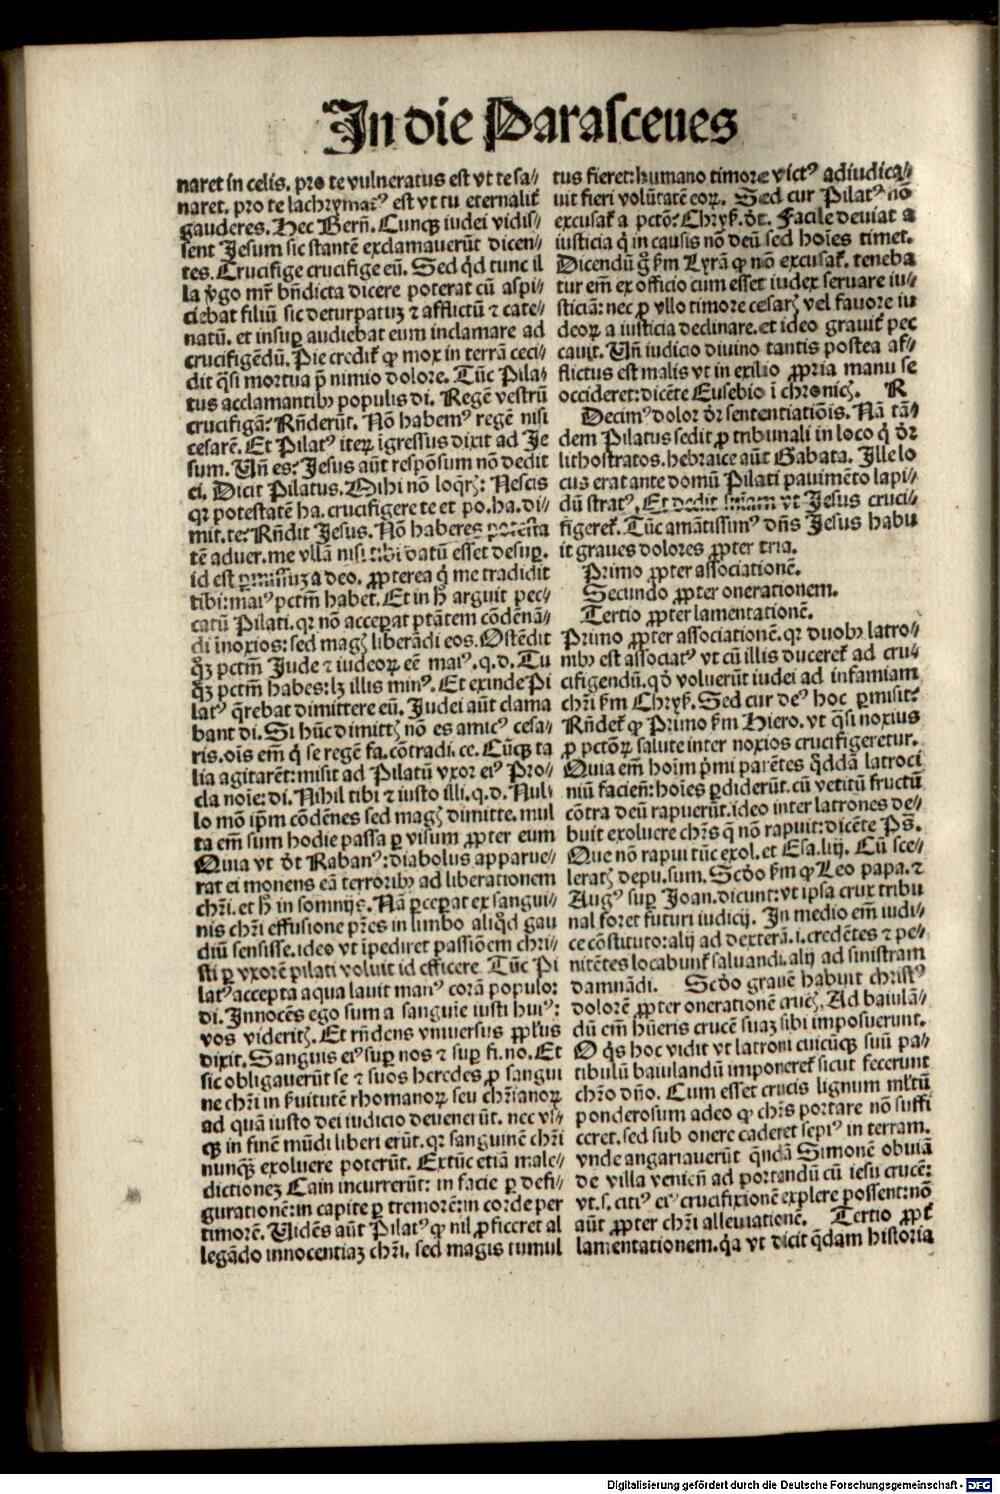 In die Parasceues
naret in celis. pro te vulneratus est vt te sa⸗
naret. pro te lachrymatꝰ est vt tu eternalit̃
gauderes. Hec Bern̄. Cunqꝫ iudei vidis⸗
sent Jesum sic stantē exclamauerūt dicen⸗
tes. Crucifige crucifige eū. Sed qͥd tunc il
la v̓go mr̄ bn̄dicta dicere poterat cū aspi⸗
ciebat filiū sic deturpatuꝫ ⁊ afflictū ⁊ cate⸗
natū. et insuꝑ audiebat eum inclamare ad
crucifigēdū. Pie credit̃ ꝙ mox in terrā ceci⸗
dit qͣsi mortua p̄ nimio dolore. Tūc Pila⸗
tus acclamantibꝰ populis di. Regē vestrū
crucifigā? Rn̄derūt. Nō habemꝰ regē nisi
cesarē. Et Pilatꝰ iteꝝ īgressus dixit ad Je
sum. Vn̄ es? Jesus aūt respōsum nō dedit
ei. Dicit Pilatus. Mihi nō loqr̄ꝭ: Nescis
qꝛ potestatē ha. crucifigere te et po. ha. di⸗
mit. te? Rn̄dit Jesus. Nō haberes potesta
tē aduer. me vllā nisi tibi datū esset desuꝑ.
id est ꝑmissuꝫ a deo. ꝓpterea qͥ me tradidit
tibi: maiꝰ pctm̄ habet. Et in h̓ arguit pec⸗
catū Pilati. qꝛ nō acceꝑat ptātem cōdēnā⸗
di īnoxios: sed magꝭ liberādi eos. Ostēdit
qͣꝫ pctm̄ Jude ⁊ iudeoꝝ eē maiꝰ. q. d. Tu
qͣꝫ pctm̄ habes: lꝫ illis minꝰ. Et exinde Pi
latꝰ q̄rebat dimittere eū. Judei aūt clama
bant di. Si hūc dimittꝭ nō es amicꝰ cesa⸗
ris. oīs em̄ qͥ se regē fa. cōtradi. ce. Cūqꝫ ta
lia agitarēt: misit ad Pilatū vxor eiꝰ Pro⸗
cla noīe: di. Nihil tibi ⁊ iusto illi. q. d. Nul⸗
lo mō ip̄m cōdēnes sed magꝭ dimitte. mul
ta em̄ sum hodie passa ꝑ visum ꝓpter eum
Quia vt d̓t Rabanꝰ: diabolus apparue⸗
rat ei monens eā terroribꝰ ad liberationem
chr̄i. et h̓ in somnijs. Nā ꝑceꝑat ex sangui⸗
nis chr̄i effusione pr̄es in limbo aliqͥd gau
diū sensisse. ideo vt īpediret passiōem chri⸗
sti ꝑ vxorē pilati voluit id efficere Tūc Pi
latꝰ accepta aqua lauit manꝰ corā populo:
di. Innocēs ego sum a sanguie iusti huiꝰ:
vos videritꝭ. Et rn̄dens vniuersus ppl̓us
dixit. Sanguis eiꝰ suꝑ nos ⁊ suꝑ fi. no. Et
sic obligauerūt se ⁊ suos heredes ꝓ sangui
ne chr̄i in s̓uitutē rhomanoꝝ seu chr̄ianoꝝ
ad quā iusto dei iudicio deuenerūt. nec vs⸗
qꝫ in finē mūdi liberi erūt. qꝛ sanguinē chr̄i
nunqͣꝫ exoluere poterūt. Extūc etiā male⸗
dictioneꝫ Cain incurrerūt: in facie ꝑ defi⸗
gurationē: in capite ꝑ tremorē: in corde per
timorē. Vidēs aūt Pilatꝰ ꝙ nil ꝓficeret al
legādo innocentiaꝫ chr̄i. sed magis tumul
tus fieret: humano timore victꝰ adiudica⸗
uit fieri volūtatē eoꝝ. Sed cur Pilatꝰ nō
excusat̃ a pctō? Chryß. d̓t. Facile deuiat a
iusticia qͥ in causis nō deū sed hoīes timet.
Dicendū gͦ ßm Lyrā ꝙ nō excusat̃. teneba
tur em̄ ex officio cum esset iudex seruare iu⸗
sticiā: nec ꝑ vllo timore cesarꝭ vel fauore iu
deoꝝ a iusticia declinare. et ideo grauit̃ pec
cauit. Vn̄ iudicio diuino tantis postea af⸗
flictus est malis vt in exilio ꝓpria manu se
occideret: dicēte Eusebio ī chronicꝭ. R
Decimꝰ dolor d̓r sententiatiōis. Nā tā⸗
dem Pilatus sedit ꝓ tribunali in loco qͥ d̓r
lithostratos. hebraice aūt Gabata. Ille lo
cus erat ante domū Pilati pauimēto lapi⸗
dū stratꝰ. Et dedit sn̄iam vt Jesus cruci⸗
figeret̃. Tūc amātissimꝰ dn̄s Jesus habu
it graues dolores ꝓpter tria.
Primo ꝓpter associationē.
Secundo ꝓpter onerationem.
Tertio ꝓpter lamentationē.
Primo ꝓpter associationē. qꝛ duobꝰ latro⸗
nibꝰ est associatꝰ vt cū illis duceret̃ ad cru⸗
cifigendū. qd̓ voluerūt iudei ad infamiam
chr̄i ßm Chryß. Sed cur deꝰ hoc ꝑmisit?
Rn̄det̃ ꝙ Primo ßm Hiero. vt qͣsi noxius
ꝓ pctōꝝ salute inter noxios crucifigeretur.
Quia em̄ hoīm p̓mi parētes qͥddā latroci
niū facien̄: hoīes ꝑdiderūt. cū vetitū fructū
cōtra deū rapuerūt. ideo inter latrones de⸗
buit exoluere chr̄s qͥ nō rapuit: dicēte Ps̄.
Que nō rapui tūc exol. et Esa. liij. Cū sce⸗
leratꝭ depu. sum. Scd̓o ßm ꝙ Leo papa. ⁊
Augꝰ suꝑ Joan. dicunt: vt ipsa crux tribu
nal foret futuri iudicij. In medio em̄ iudi⸗
ce cōstituto: alij ad dexterā. i. credētes ⁊ pe⸗
nitētes locabunt̃ saluandi. alij ad sinistram
damnādi. Scd̓o grauē habuit christꝰ
dolorē ꝓpter onerationē crucꝭ. Ad baiulā⸗
dū em̄ hūeris crucē suaꝫ sibi imposuerunt.
O qͥs hoc vidit vt latroni cuicūqꝫ suū pa⸗
tibulū baiulandū imponeret̃ sicut fecerunt
chr̄o dn̄o. Cum esset crucis lignum ml̓tū
ponderosum adeo ꝙ chr̄s portare nō suffi
ceret. sed sub onere caderet sepiꝰ in terram.
vnde angariauerūt quēdā Simonē obuiā
de villa venien̄ ad portandū cū iesu crucē:
vt. s. citiꝰ eiꝰ crucifixionē explere possent: nō
aūt ꝓpter chr̄i alleuiationē. Tertio ꝓpt̃
lamentationem. qͥa vt dicit qͥdam historia
Digitalisierung gefördert durch die Deutsche Forschungsgemeinschaft - DFG